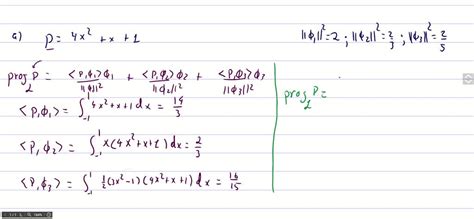 a) P = 4x² + x + 1
||φ₁||² = 2 ; ||φ₂||² = 2/3 ; ||φ₃||² = 2/5
proj_L P = <P,φ₁>φ₁/||φ₁||² + <P,φ₂>φ₂/||φ₂||² + <P,φ₃>φ₃/||φ₃||²
<P,φ₁> = ∫₋₁¹ 4x²+x+1 dx = 14/3
<P,φ₂> = ∫₋₁¹ x(4x²+x+1) dx = 2/3
<P,φ₃> = ∫₋₁¹ ½(3x²-1)(4x²+x+1) dx = 16/15
proj_L P =